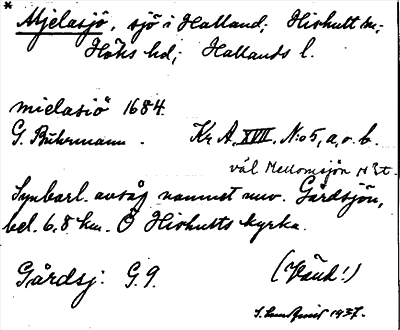 * Mjelasjö, sjö i Halland; Hishult sn;
Höks hd; Hallands l.
mielasiö 1684.
G. Buhrmann. Kr. A. XVII. N:o 5, a, o. b.
väl Mellomsjön N 3t.
Synbarl. avsåg namnet nuv. Gårdsjön,
bel. 6,8 km. Ö Hishults kyrka.
Gårdsj: G. 9. (Vänd!)
1937.